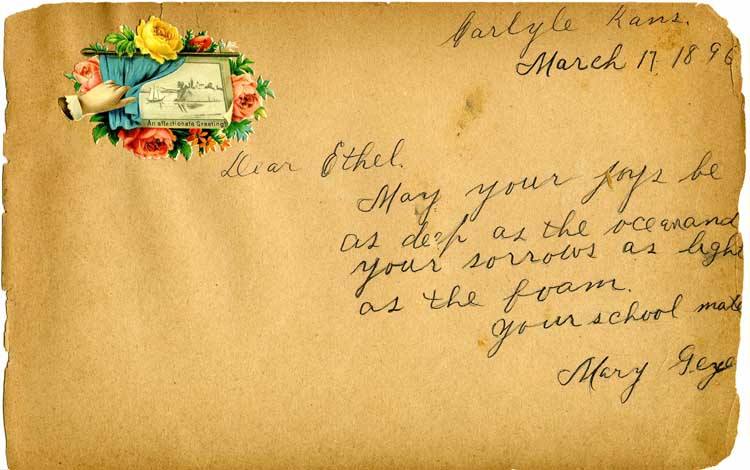 Carlyle Kans.
March 17 1896
An affectionate Greeting
Dear Ethel.
May your joys be
as deep as the ocean and
your sorrows as light
as the foam.
Your school mate
Mary